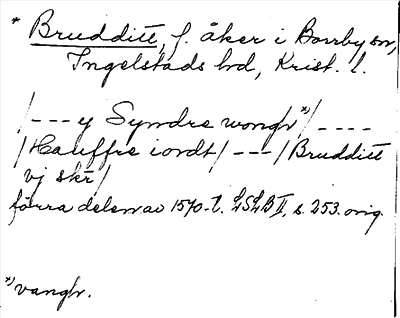 * Brudditt, f. åker i Borrby sn,
Ingelstads hd, Krist. l.
/--- y Syndre wongh *)/ ----
/Hauffre iordt/ --- /Brudditt
vj skr/
förra delen av 1570-t. LSLB II, s. 253. orig.
*) vangh.